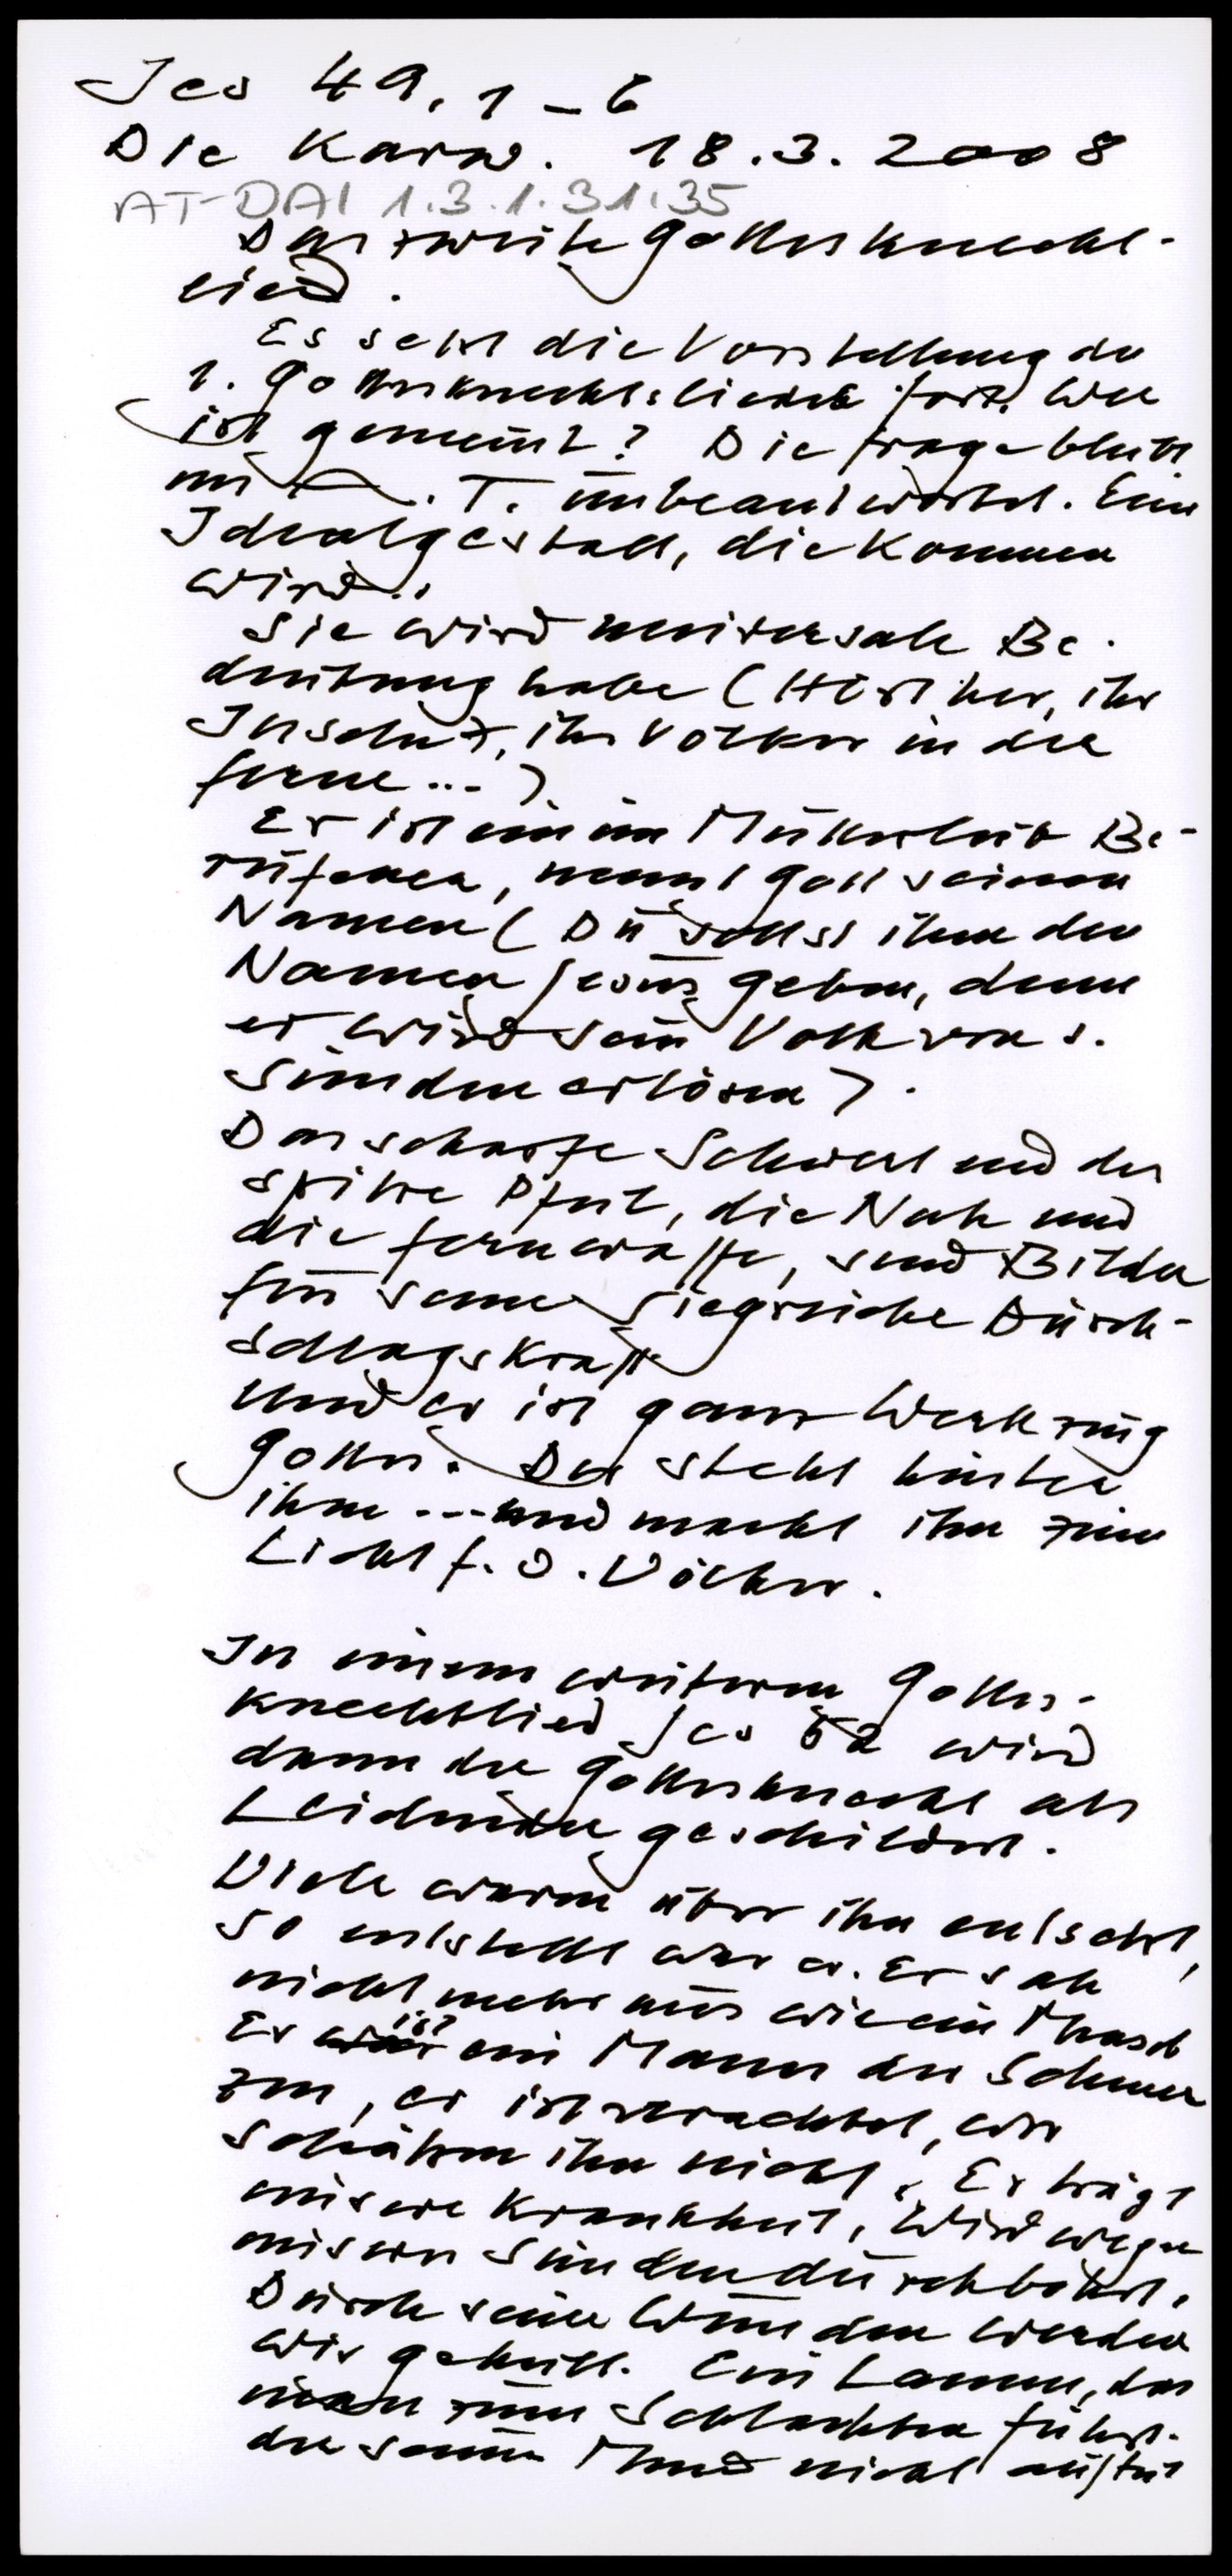 Jes 49, 1 – 6
Die Karw. 18.3.2008
AT-DAI 1.3.1.31.35
Das zweite Gottesknecht-
lied.
Es setzt die Vorstellung des
1. Gottesknechtsliedes fort. Wer
ist gemeint? Die Frage bleibt
im A. T. unbeantwortet. Eine
Idealgestalt, die kommen
wird.
Sie wird universale Be-
deutung habe (Hört her, ihr
Inseln, ihr Völker in der
Ferne...)
Er ist ein im Mutterleib Be-
rufener, nennt Gott seinen
Namen (Du sollst ihm den
Namen Jesus geben, denn
er wird sein Volk von s.
Sünden erlösen).
Das scharfe Schwert und der
spitze Pfeil, die Nah und
die Fernwaffe, sind Bilder
für seine siegreiche Durch-
schlagskraft
Und er ist ganz Werkzeug
Gottes. Der steht hinter
ihm ... und macht ihn zum
Licht f. d. Völker.
In einem weiteren Gottes-
knechtlied Jes 52 wird
dann der Gottesknecht als
Leidender geschildert.
Viele waren über ihn entsetzt,
so entstellt war er. Er sah
nicht mehr aus wie ein Mensch
Er ist ein Mann der Schmer
zen, er ist verachtet, wir
schätzen ihn nicht. Er trägt
unsere Krankheit, Wird wegen
unserer Sünden durchbohrt.
Durch seine Wunden werden
wir geheilt. Ein Lamm, das
man zum Schlachten führt.
der seinen Mund nicht auftut